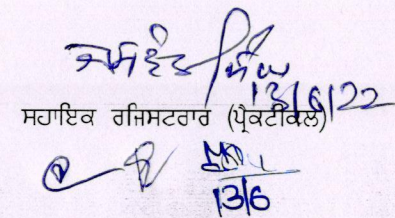 ਜਸਵੰਤ ਸਿੰਘ
13/6/22
ਸਹਾਇਕ ਰਜਿਸਟਰਾਰ (ਪ੍ਰੈਕਟੀਕਲ)
13/6